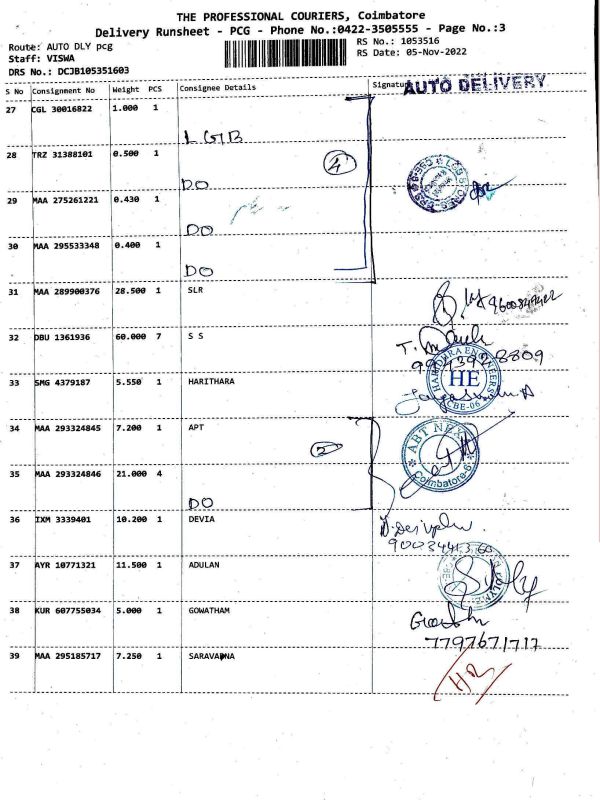 THE PROFESSIONAL COURIERS, Coimbatore
Delivery Runsheet - PCG - Phone No.:0422-3505555 - Page No.:3
Route: AUTO DLY pcg
RS No.: 1053516
Staff: VISWA
RS Date: 05-Nov-2022
DRS No.: DCJB105351603
S No Consignment No Weight PCS Consignee Details Signature
AUTO DELIVERY
27 CGL 30016822 1.000 1
LGB
28 TRZ 31388101 0.500 1
4
DO
29 MAA 275261221 0.430 1
DO
30 MAA 295533348 0.400 1
DO
31 MAA 289900376 28.500 1 SLR
32 DBU 1361936 60.000 7 S S
HARIDHRA ENGINEERS
HE
CBE-06
33 SMG 4379187 5.550 1 HARITHARA
34 MAA 293324845 7.200 1 APT
2
ABT NEXT
Coimbatore-6
35 MAA 293324846 21.000 4
DO
36 IXM 3339401 10.200 1 DEVIA
37 AYR 10771321 11.500 1 ADULAN
38 KUR 607755034 5.000 1 GOWATHAM
7797671717
39 MAA 295185717 7.250 1 SARAVANA